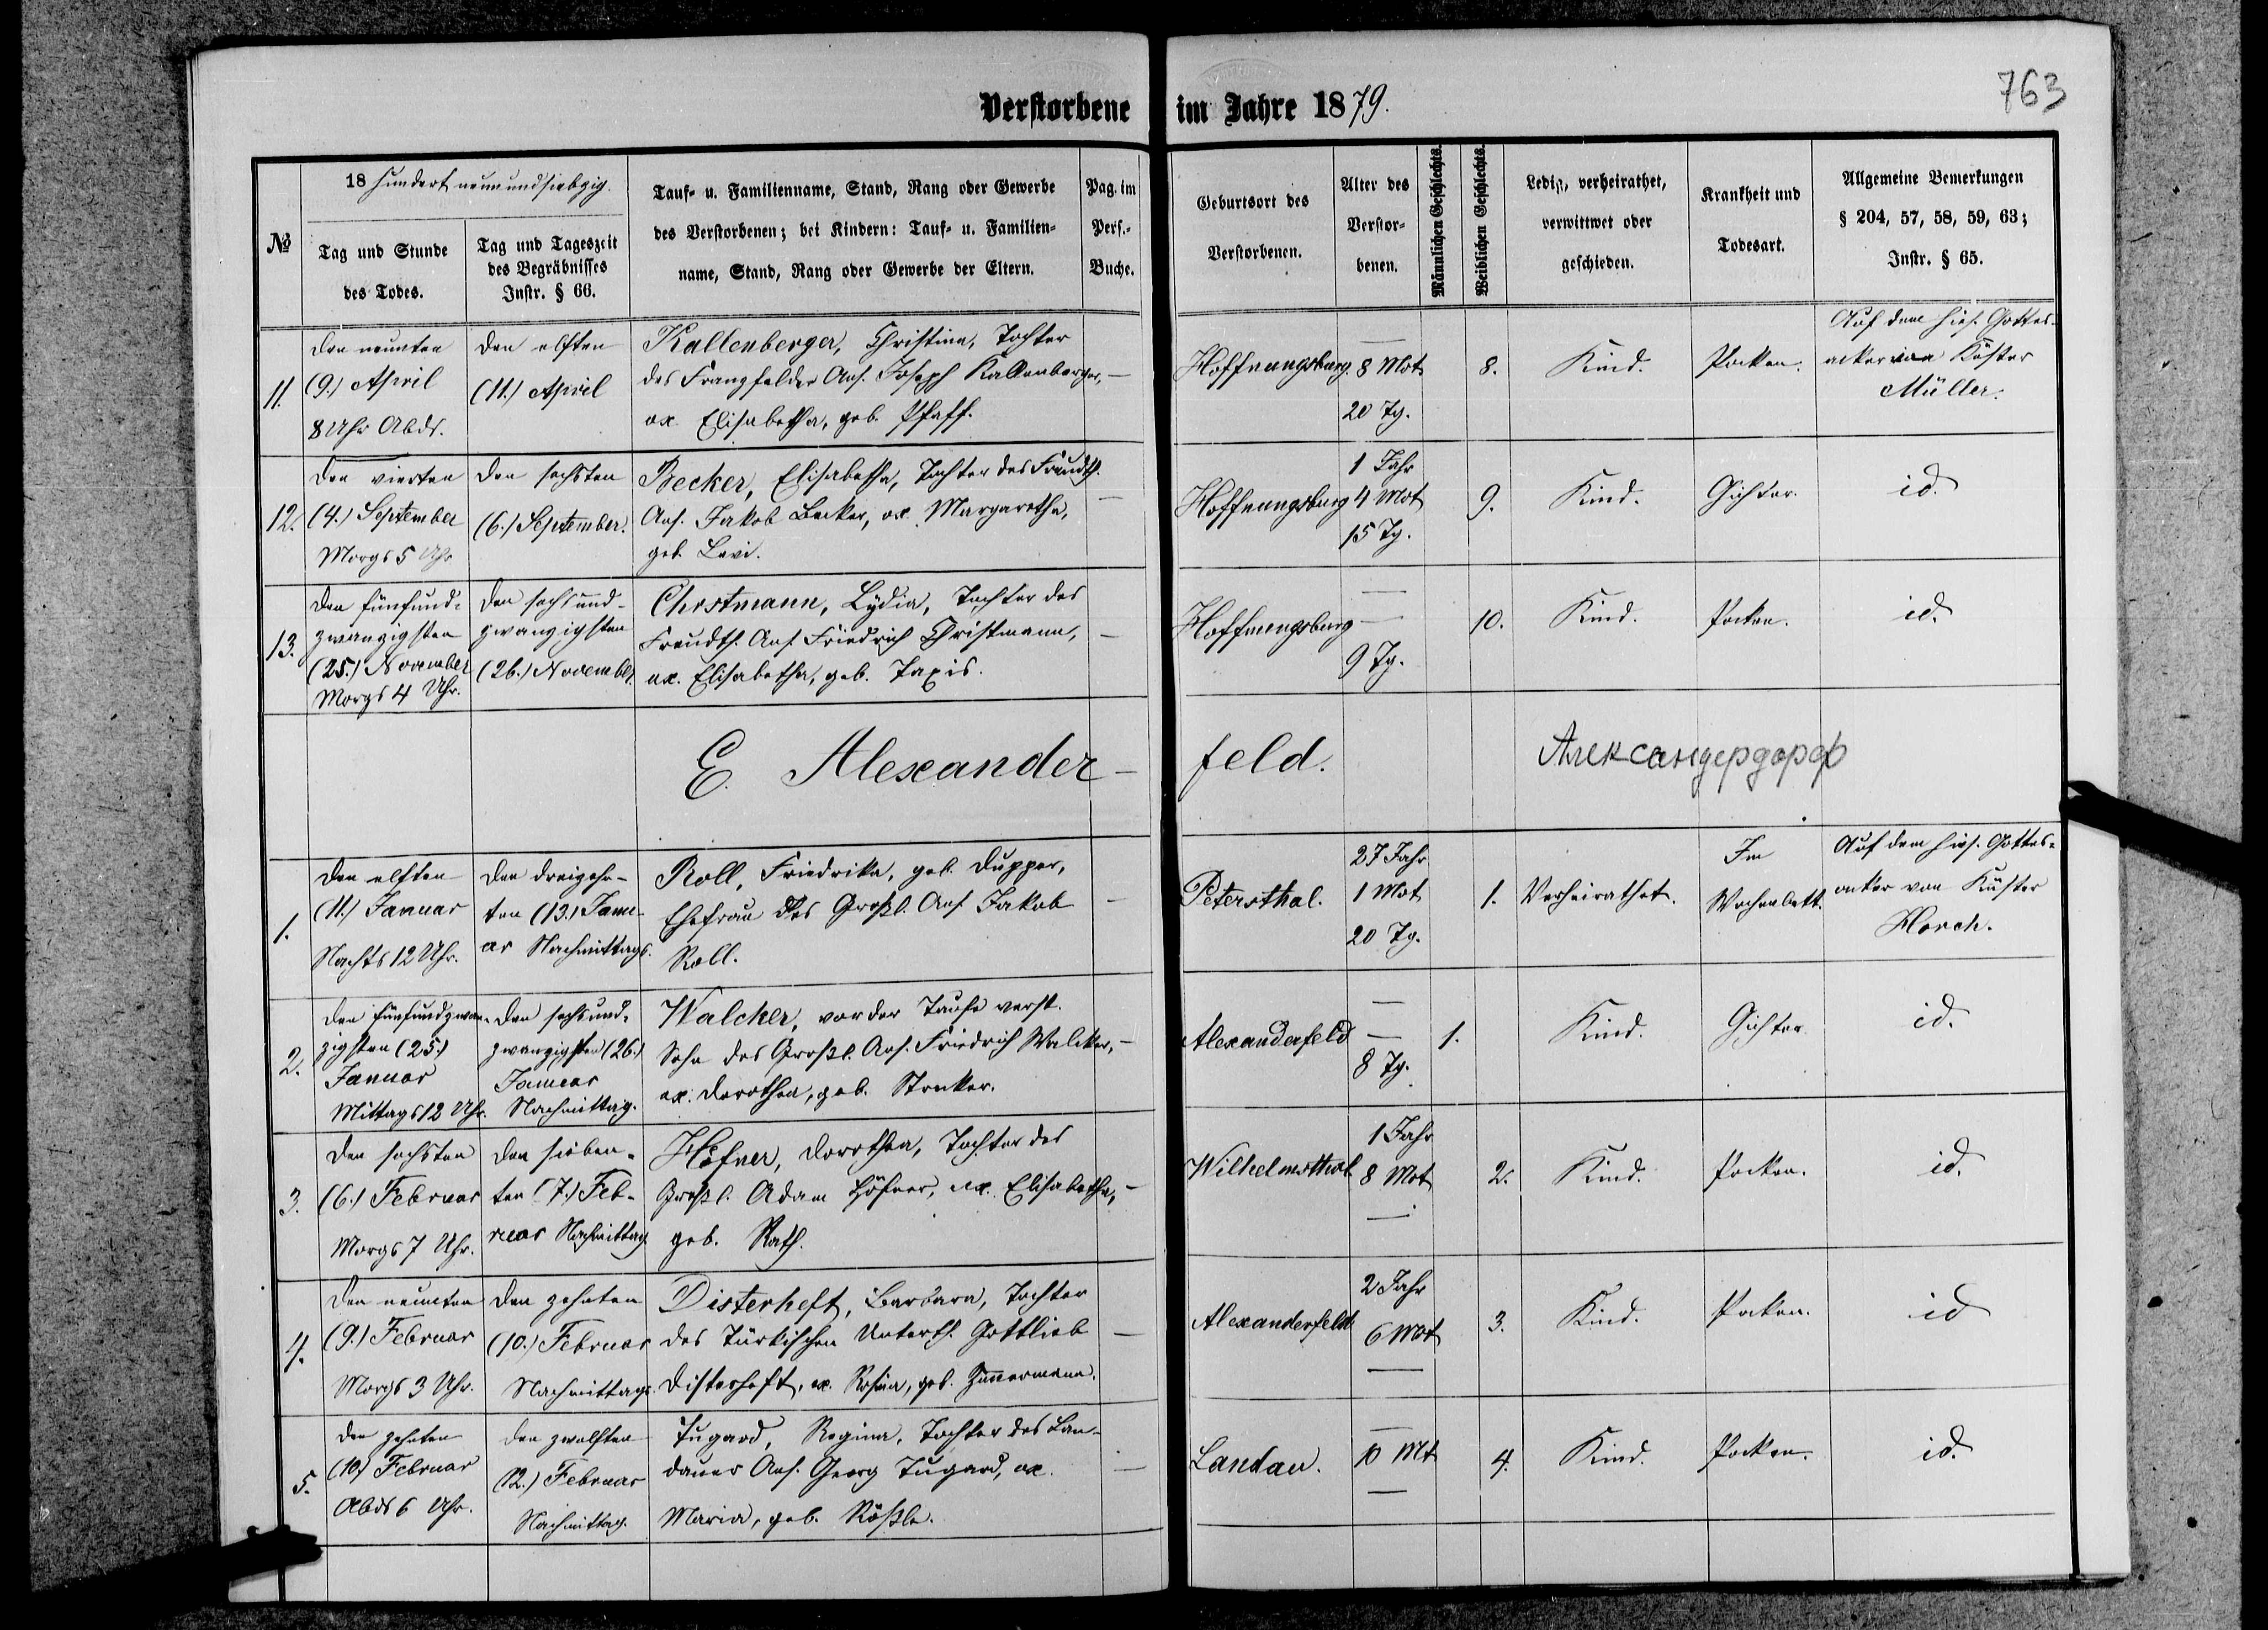 763
Verstorbene im Jahre 1879.
№
18 hundert neunundsiebzig.
Tag und Stunde
des Todes.
Tag und Tageszeit
des Begräbnisses
Instr. § 66.
Tauf- u. Familienname, Stand, Rang oder Gewerbe
des Verstorbenen; bei Kindern: Tauf- u. Familien-
name, Stand, Rang oder Gewerbe der Eltern.
Pag. im
Pers.-
Buche.
Geburtsort des
Verstorbenen.
Alter des
Verstor-
benen.
Männlichen Geschlechts.
Weiblichen Geschlechts.
Ledig, verheirathet,
verwittwet oder
geschieden.
Krankheit und
Todesart.
Allgemeine Bemerkungen
§ 204, 57, 58, 59, 63;
Instr. § 65.
11.
Den neunten
(9.) April
8 Uhr Abds.
Den elften
(11.) April
Kallenberger, Christina, Tochter
des Franzfelder Ans. Joseph Kallenberger, —
ux. Elisabetha, geb. Pfaff.
Hoffnungsburg.
—
8 Mot
20 Tg.
8.
Kind.
Pocken.
Auf dem hies. Gottes-
acker von Küster
Müller.
12.
Den vierten
(4.) September
Morgs 5 Uhr
Den sechsten
(6.) September.
Becker, Elisabetha, Tochter des Freudth.
Ans. Jakob Becker, ux. Margaretha, —
geb. Levi.
Hoffnungsburg
1 Jahr
4 Mot
15 Tg.
9.
Kind.
Gichter.
id.
13.
Den fünfund-
zwanzigsten
(25.) November
Morgs 4 Uhr.
Den sechsund-
zwanzigsten
(26.) November.
Chrstmann, Lydia, Tochter des
Freudth. Ans. Friedrich Christmann, —
ux. Elisabetha, geb. Taxis.
Hoffnungsburg
—
—
9 Tg.
10.
Kind.
Pocken.
id.
E. Alexander- feld.
Александердорф
1.
Den elften
(11.) Januar
Nachts 12 Uhr.
Den dreizehn-
ten (13.) Janu-
ar Nachmittags.
Roll, Friedrika, geb. Dupper,
Ehefrau des Großl. Ans. Jakob —
Roll.
Petersthal.
27 Jahr
1 Mot
20 Tg.
1.
Verheirathet.
Im
Wochenbett.
Auf dem hies. Gottes-
acker von Küster
Horch.
2.
Den fünfundzwan-
zigsten (25.)
Januar
Mittags 12 Uhr.
Den sechsund-
zwanzigsten (26.)
Januar
Nachmittag.
Walcker, vor der Taufe verst.
Sohn des Großl. Ans. Friedrich Walcker, —
ux. Dorothea, geb. Strecker.
Alexanderfeld
—
—
8 Tg.
1.
Kind.
Gichter
id.
3.
Den sechsten
(6.) Februar
Morgs 7 Uhr.
Den sieben-
ten (7.) Feb-
ruar Nachmittag
Höfner, Dorothea, Tochter des
Großl. Adam Höfner, ux. Elisabetha, —
geb. Rath.
Wilhelmsthal
1 Jahr
8 Mot
—
2.
Kind.
Pocken.
id.
4.
Den neunten
(9.) Februar
Morgs 3 Uhr.
Den zehnten
(10.) Februar
Nachmittags.
Disterheft, Barbara, Tochter
des Türkischen Unterth. Gottlieb —
Disterheft, ux. Rosina, geb. Zimmermann.
Alexanderfeld
2 Jahr
6 Mot
—
3.
Kind.
Pocken.
id
5.
Den zehnten
(10.) Februar
Abds 6 Uhr.
Den zwölften
(12.) Februar
Nachmittag.
Tugard, Regina, Tochter des Lan-
dauer Ans. Georg Tugard, ux. —
Maria, geb. Rößle.
Landau.
—
10 Mt
—
4.
Kind.
Pocken.
id.